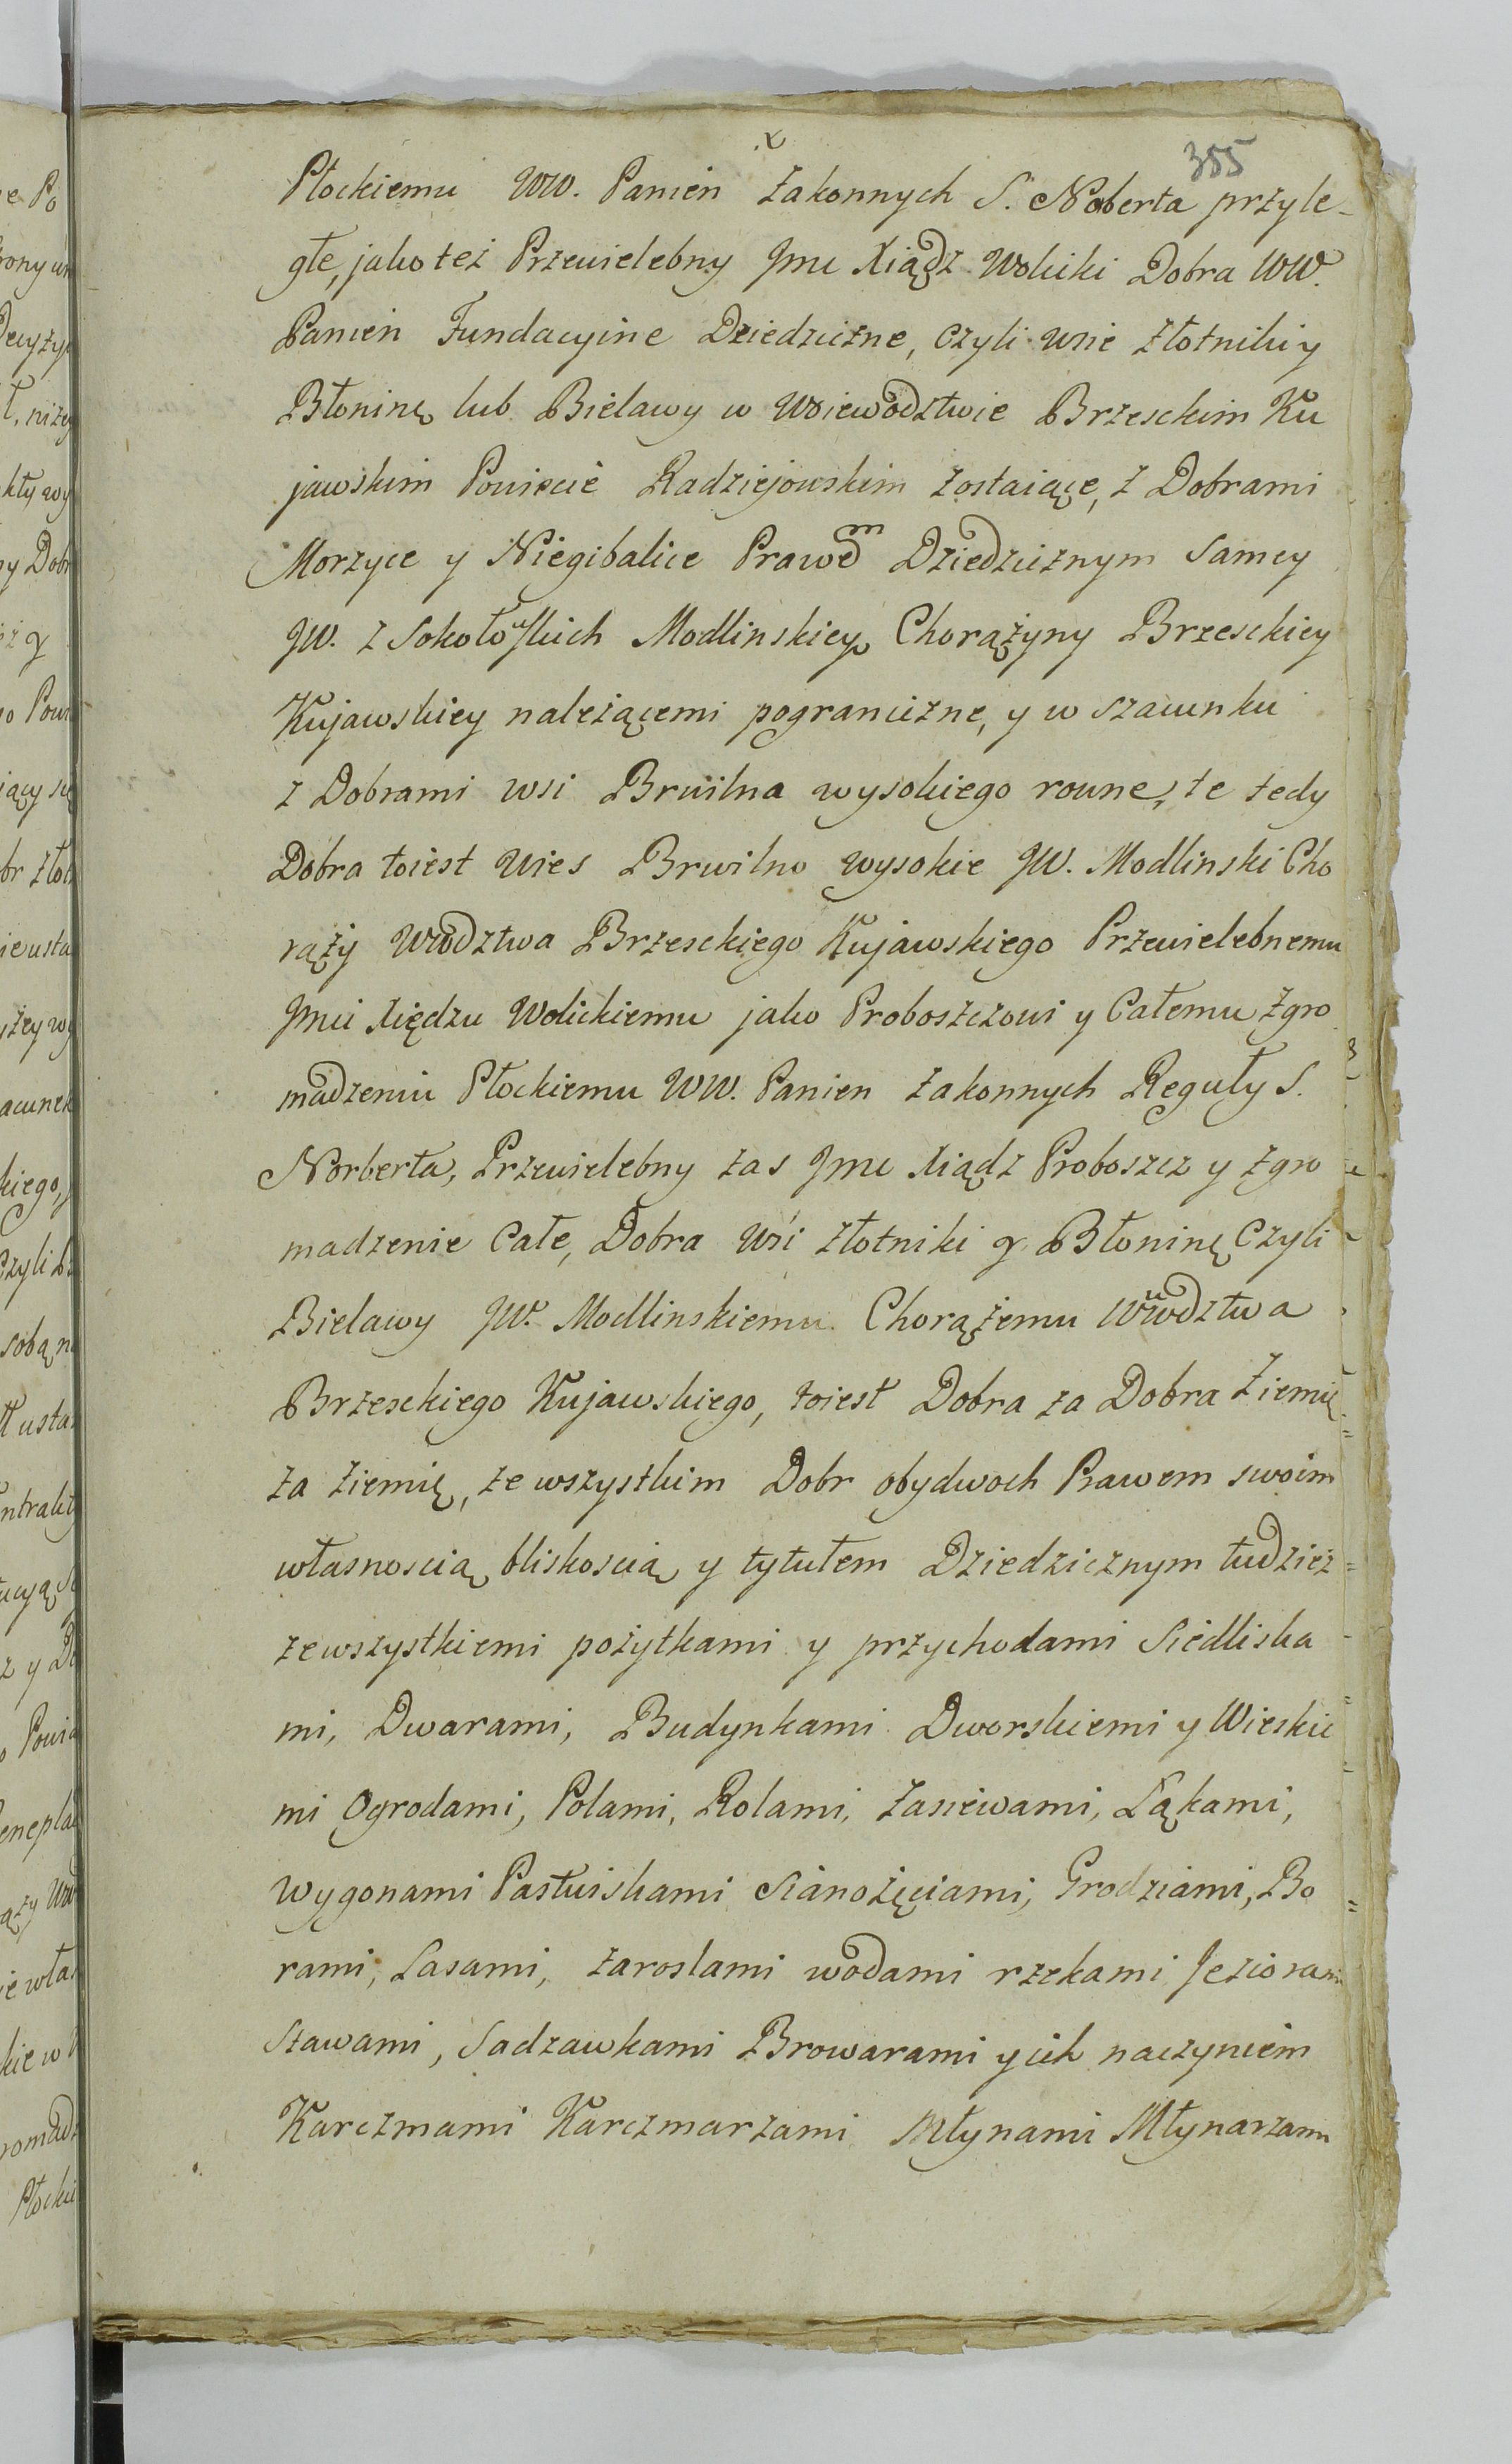 355
Płockiemu WW. Panien Zakonnych S. Noberta przyle-
głe, jako też Przewielebny Jmc Xiądz Wolicki Dobra WW.
Panien Fundacyine Dziedziczne, czyli wsie Złotniki y
Błoninę lub Bielawy w Woiewodztwie Brzesckim Ku
jawskim Powiecie Radziejowskim zostaiące, z Dobrami
Morzyce y Niegibalice Prawem Dziedzicznym Samey
JW. z Sokołowskich Modlinskiey Chorążyny Brzesckiey
Kujawskiey należącemi pograniczne, y w szacunku
z Dobrami wsi Brwilna wysokiego rowne, te tedy
Dobra toiest Wies Brwilno wysokie JW. Modlinski Cho
rąży Wwodztwa Brzesckiego Kujawskiego Przewielebnemu
Jmci Xiędzu Wolickiemu jako Proboszczowi y Całemu Zgro
madzeniu Płockiemu WW. Panien Zakonnych Reguły S.
Norberta, Przewielebny zas Jmc Xiądz Proboszcz y Zgro
madzenie Całe, Dobra Wsi Złotniki y Błoninę Czyli
Bielawy JW. Modlinskiemu Chorążemu Wwodztwa
Brzesckiego Kujawskiego, toiest Dobra za Dobra Ziemię
za Ziemię, ze wszystkim Dobr obydwoch Prawem swoim
własnoscią, bliskoscią y tytułem Dziedzicznym tudzież
ze wszystkiemi pożytkami y przychodami Siedliska
mi, Dwarami, Budynkami Dworskiemi y Wieskie
mi Ogrodami, Polami, Rolami, Zasiewami, Łąkami,
wygonami Pastwiskami Sianożęciami, Grodziami, Bo
rami, Lasami, zaroslami wodami rzekami Jeziorami
Stawami, Sadzawkami Browarami y ich naczyniem
Karczmami Karczmarzami Młynami Młynarzami